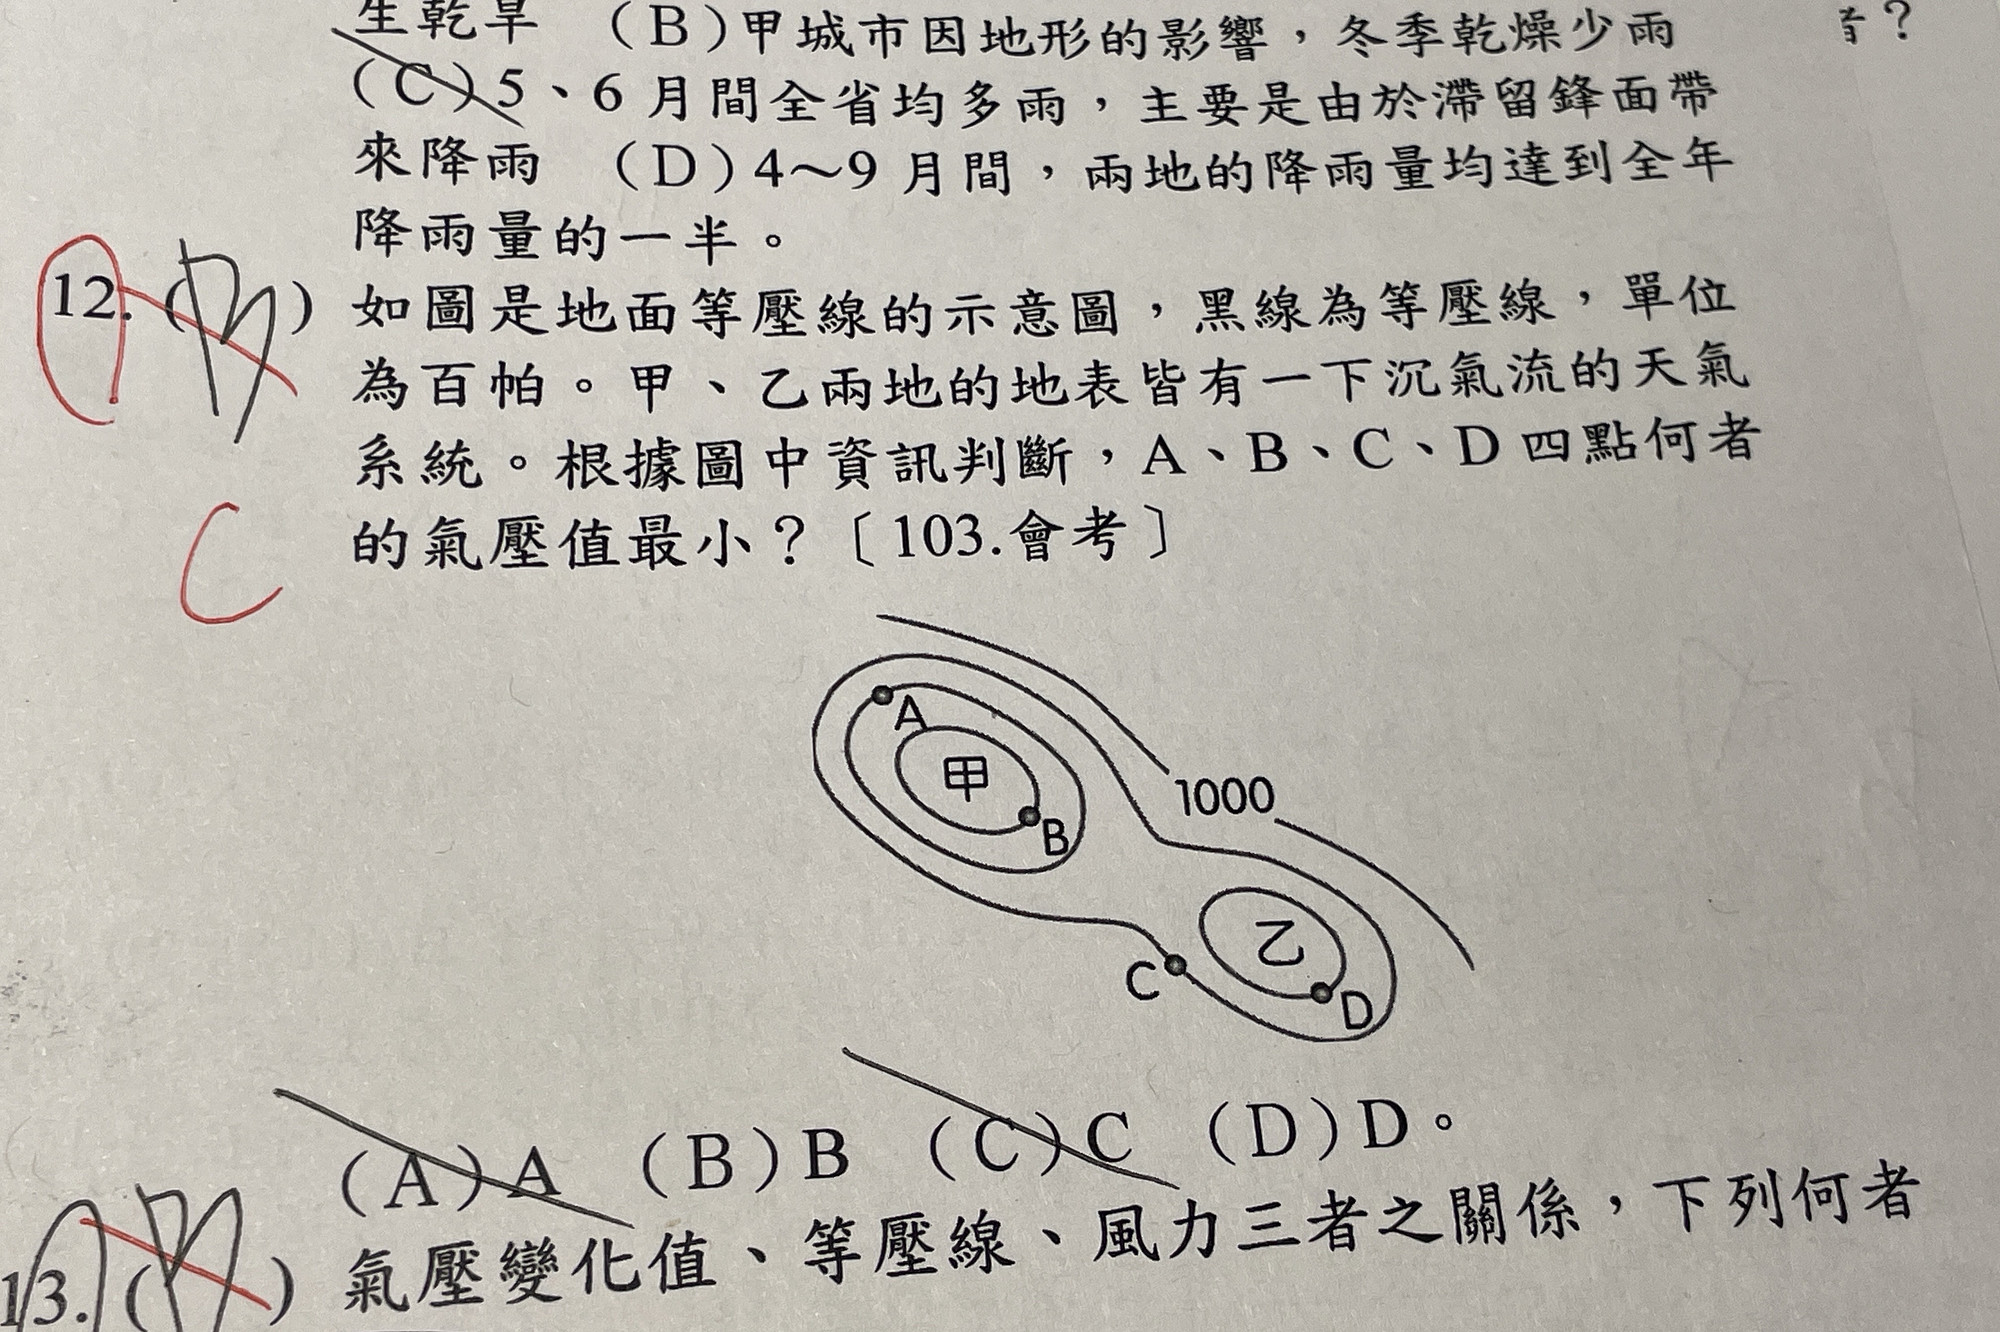 生乾旱 (B)甲城市因地形的影響，冬季乾燥少雨
者？
(C)5、6月間全省均多雨，主要是由於滯留鋒面帶
來降雨 (D)4～9月間，兩地的降雨量均達到全年
降雨量的一半。
12.( B ) 如圖是地面等壓線的示意圖，黑線為等壓線，單位
為百帕。甲、乙兩地的地表皆有一下沉氣流的天氣
系統。根據圖中資訊判斷，A、B、C、D四點何者
的氣壓值最小？〔103.會考〕
C
A
甲
B
1000
乙
C
D
(A)A (B)B (C)C (D)D。
13.( ) 氣壓變化值、等壓線、風力三者之關係，下列何者